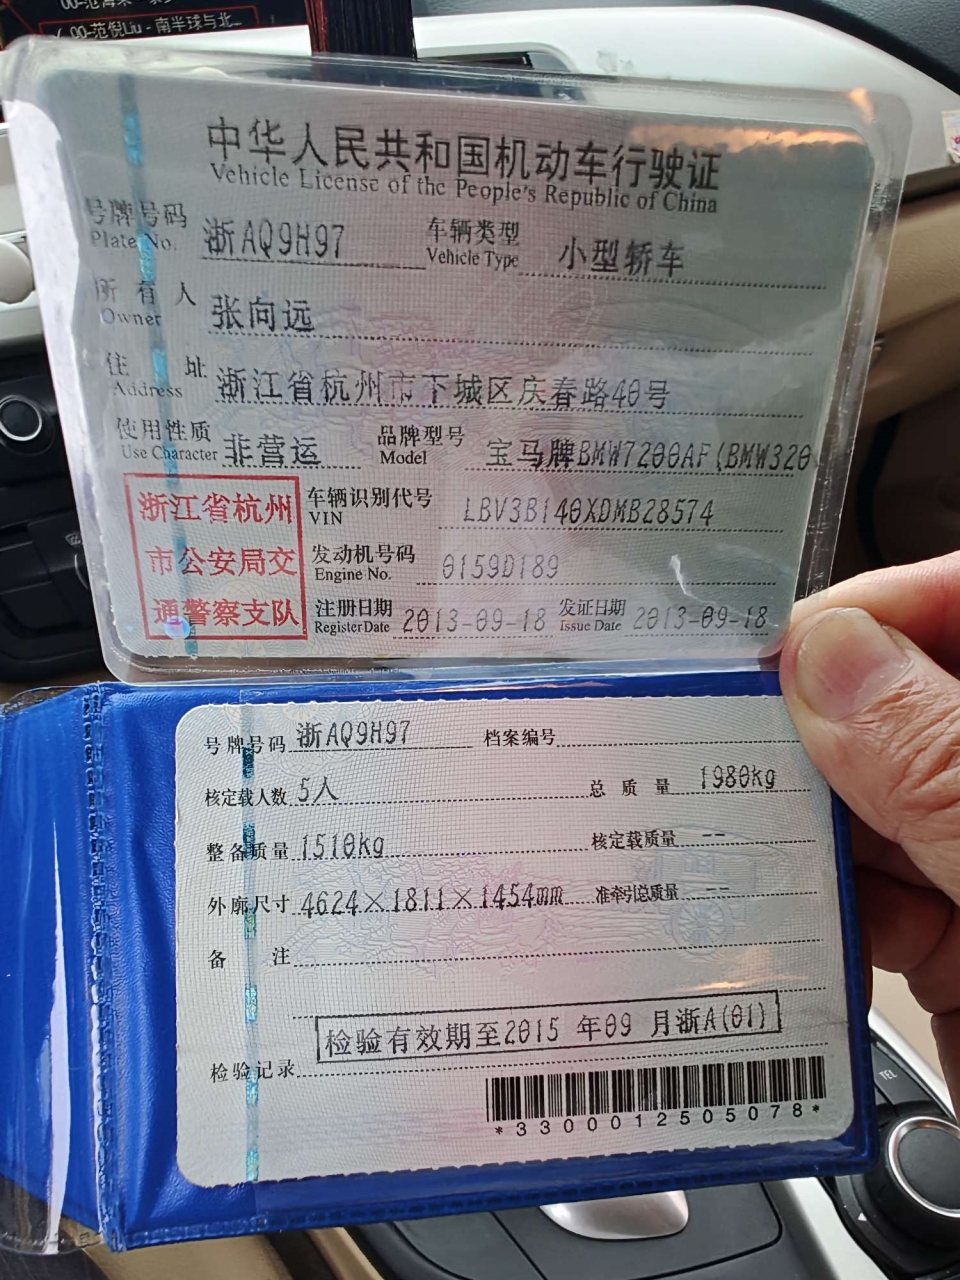 00-范倪Liu - 南半球与北...
中华人民共和国机动车行驶证
Vehicle License of the People's Republic of China
号牌号码 浙AQ9H97 车辆类型 小型轿车
Plate No. Vehicle Type
所有人 张向远
Owner
住址 浙江省杭州市下城区庆春路40号
Address
使用性质 非营运 品牌型号 宝马牌BMW7200AF(BMW320
Use Character Model
浙江省杭州
市公安局交
通警察支队
车辆识别代号 LBV3B140XDMB28574
VIN
发动机号码 0159D189
Engine No.
注册日期 2013-09-18 发证日期 2013-09-18
Register Date Issue Date
号牌号码 浙AQ9H97 档案编号
核定载人数 5人 总质量 1980kg
整备质量 1510kg 核定载质量 --
外廓尺寸 4624×1811×1454mm 准牵引总质量 --
备注
检验有效期至2015年09月浙A(01)
检验记录
*330001250507 8*
TEL